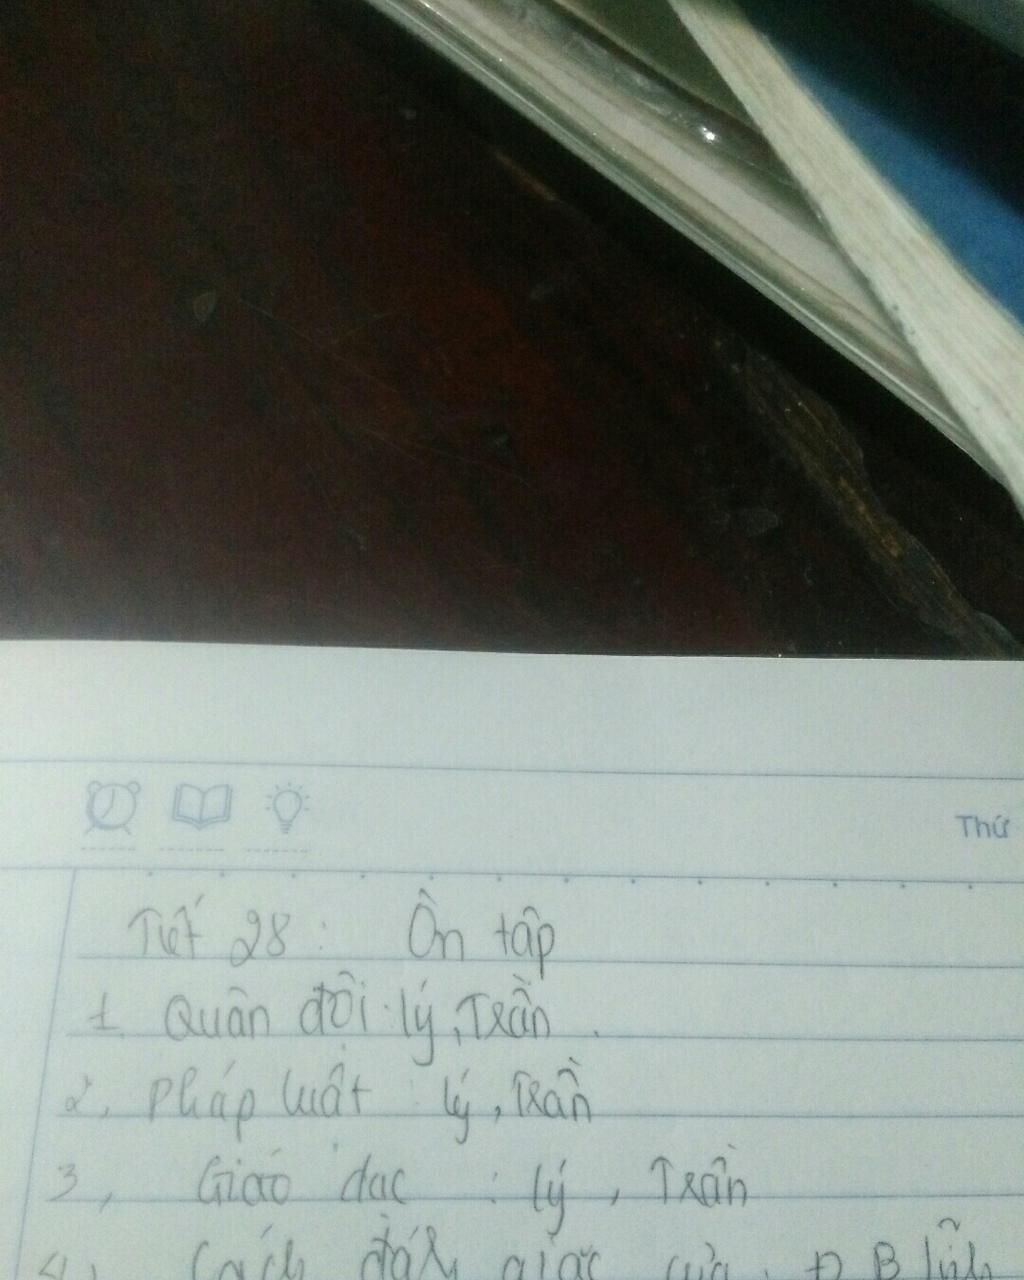 Thứ
Tiết 28 : Ôn tập
1. Quân đội : lý, Trần
2, Pháp luật : lý, Trần
3, Giáo dục : lý, Trần
4, Cách đánh giặc của Đ B lĩnh